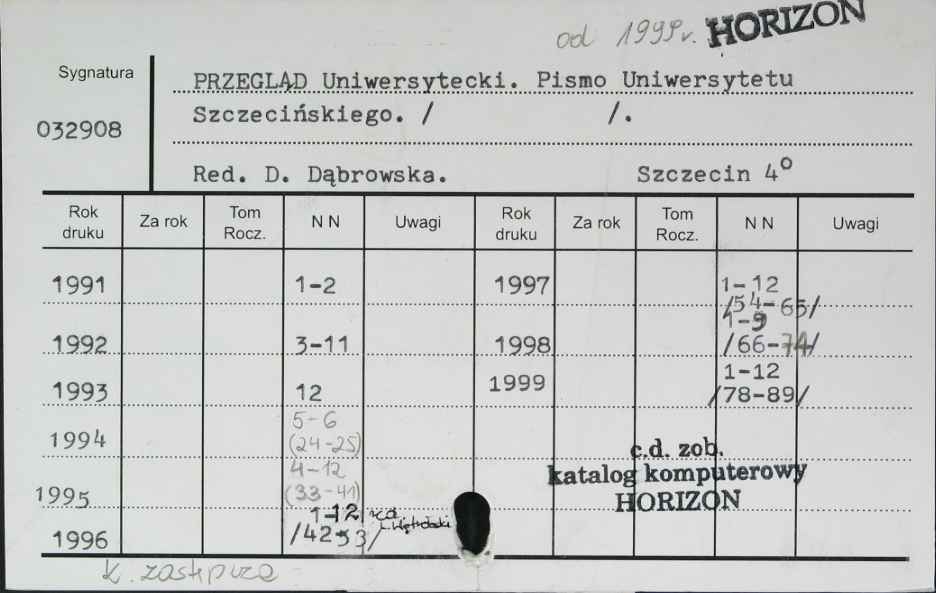 od 1999r. HORIZON
Sygnatura
032908
PRZEGLĄD Uniwersytecki. Pismo Uniwersytetu
Szczecińskiego. / /.
Red. D. Dąbrowska. Szczecin 4º
Rok druku Za rok Tom Rocz. N N Uwagi Rok druku Za rok Tom Rocz. N N Uwagi
1991 1-2 1997 1-12 /54-65/
1992 3-11 1998 1-9 /66-74/
1993 12 1999 1-12 /78-89/
1994 5-6 (24-25)
1995 4-12 (33-41)
1996 1-12 /42-53/
c.d. zob.
katalog komputerowy
HORIZON
k. zastępcza